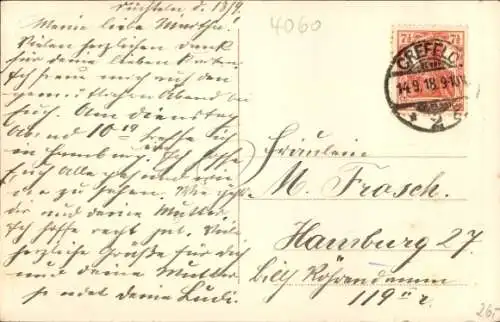 Süchteln d. 13/9.
Meine liebe Martha!
Vielen herzlichen Dank
für deine lieben Karten.
Ich freue mich auf den
Abend bei
Euch. Am Dienstag
Abend 10 19 treffe ich
in Hamburg ein. Ich hoffe
Euch alle gesund wie
der zu sehen. Wie geht's
dir und deine Mutter.
Ich hoffe recht gut. Viele
herzliche Grüße für dich
und deine Mutter
sendet deine Ludi.
4060
7½ 7½
CREFELD
14.9.18.9-10V.
* 2
Fräulein
M. Frasch.
Hamburg 27.
Billh Röhrendamm
119 II r.